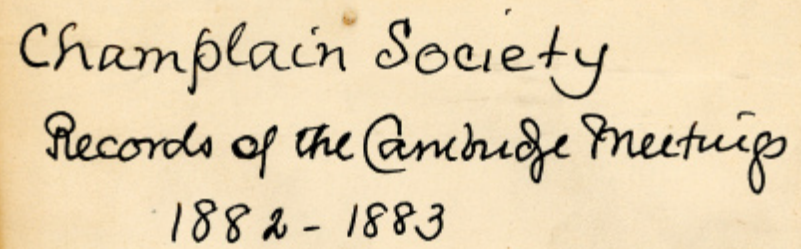 Champlain Society
Records of the Cambridge Meetings
1882 - 1883